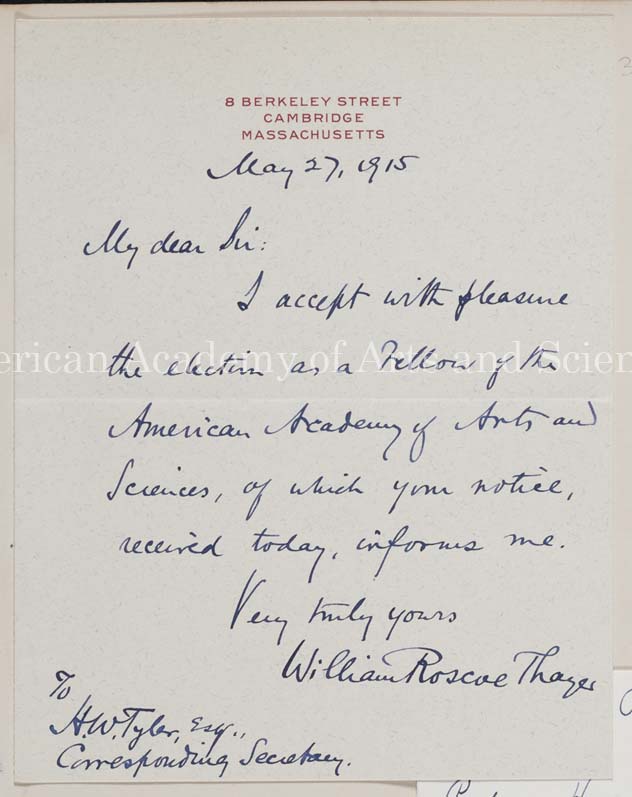 8 BERKELEY STREET
CAMBRIDGE
MASSACHUSETTS
May 27, 1915
My dear Sir:
I accept with pleasure
the election as a Fellow of the
American Academy of Arts and
Sciences, of which your notice,
received today, informs me.
Very truly yours
William Roscoe Thayer
To
H.W. Tyler, Esq.,
Corresponding Secretary.
merican Academy of Arts and Scien